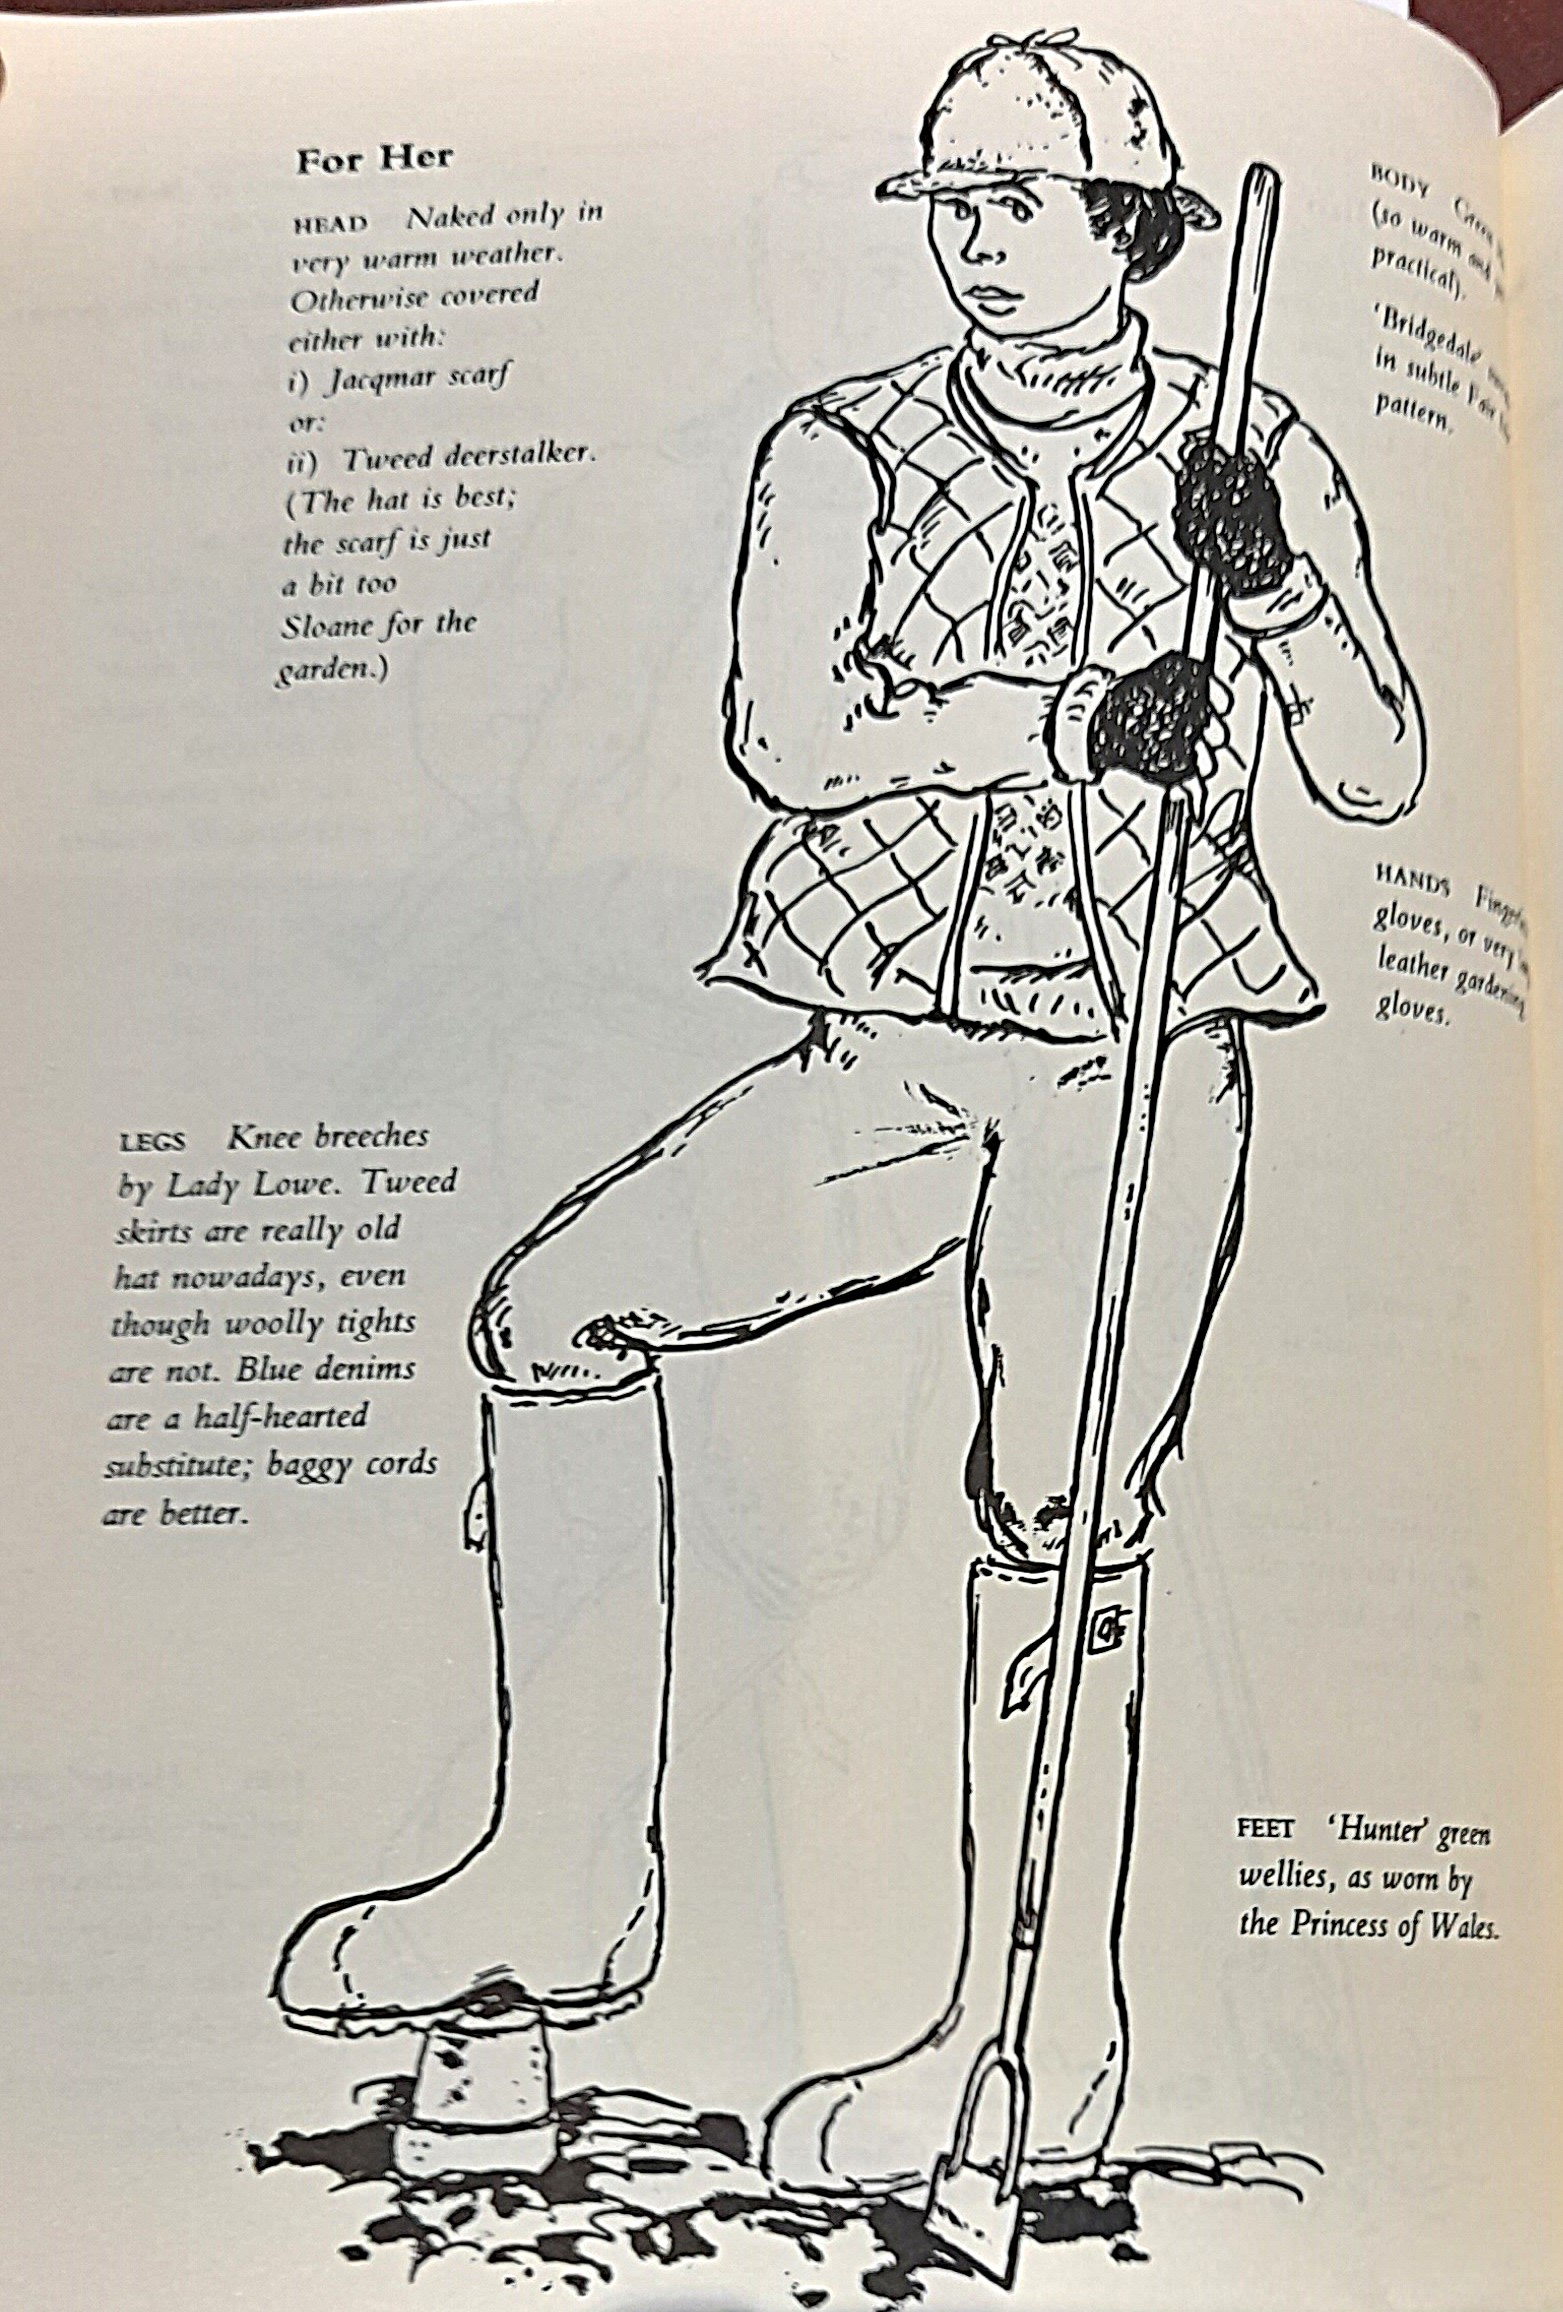 For Her
HEAD Naked only in
very warm weather.
Otherwise covered
either with:
i) Jacqmar scarf
or:
ii) Tweed deerstalker.
(The hat is best;
the scarf is just
a bit too
Sloane for the
garden.)
LEGS Knee breeches
by Lady Lowe. Tweed
skirts are really old
hat nowadays, even
though woolly tights
are not. Blue denims
are a half-hearted
substitute; baggy cords
are better.
BODY Green
(so warm and
practical).
'Bridgedale'
in subtle Fair
pattern.
HANDS
gloves, or very
leather gardening
gloves.
FEET 'Hunter' green
wellies, as worn by
the Princess of Wales.